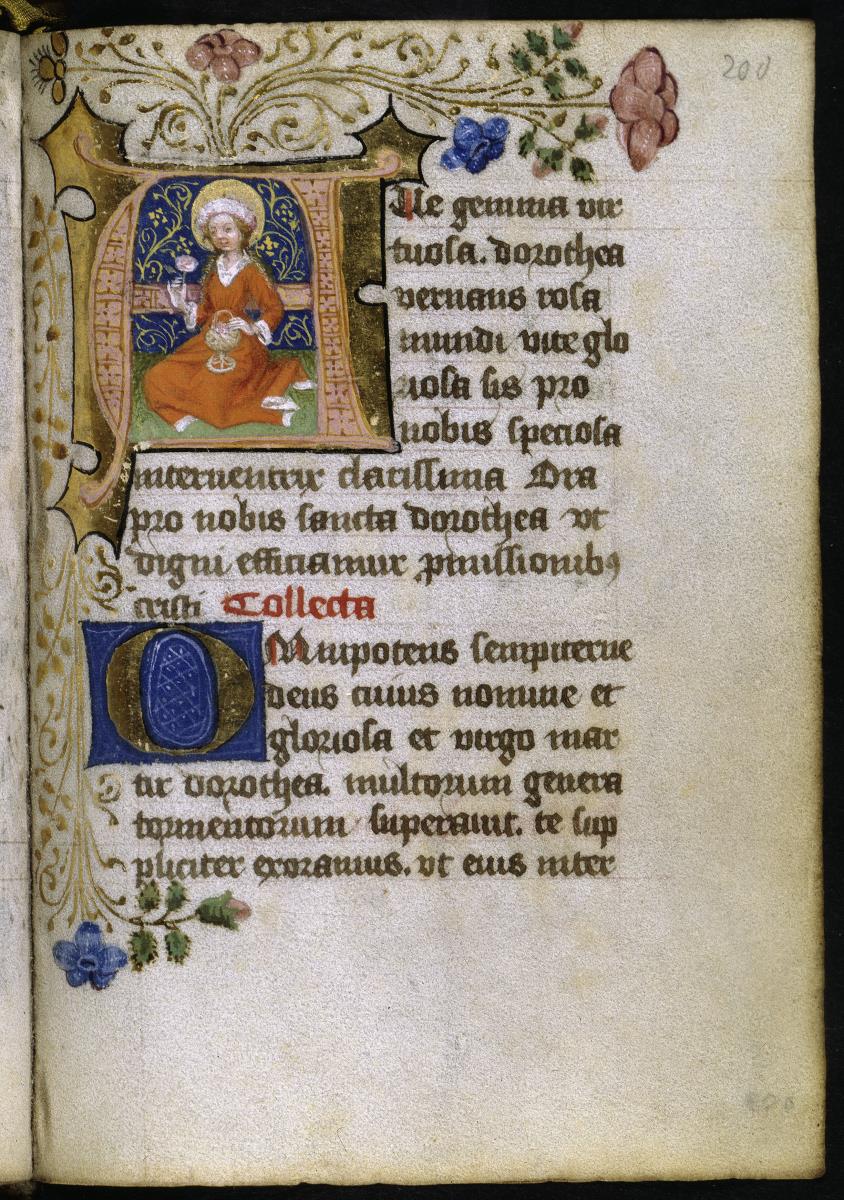 200
AUe gemma vir
tuosa. dorothea
vernans rosa
mundi vite glo
riosa sis pro
nobis speciosa
interuentrix clarissima Ora
pro nobis sancta dorothea vt
digni efficiamur ꝓmissionibꝰ
cristi Collecta
OMnipotens sempiterne
deus cuius nomine et
gloriosa et virgo mar
tir dorothea. multorum genera
tormentorum superauit. te sup
pliciter exoramus. vt eius inter